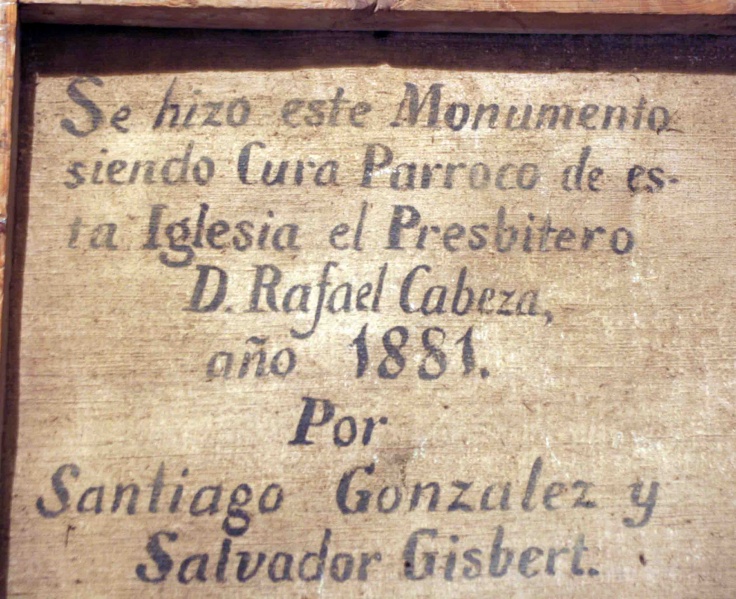 Se hizo este Monumento
siendo Cura Parroco de es-
ta Iglesia el Presbitero
D. Rafael Cabeza,
año 1881.
Por
Santiago Gonzalez y
Salvador Gisbert.